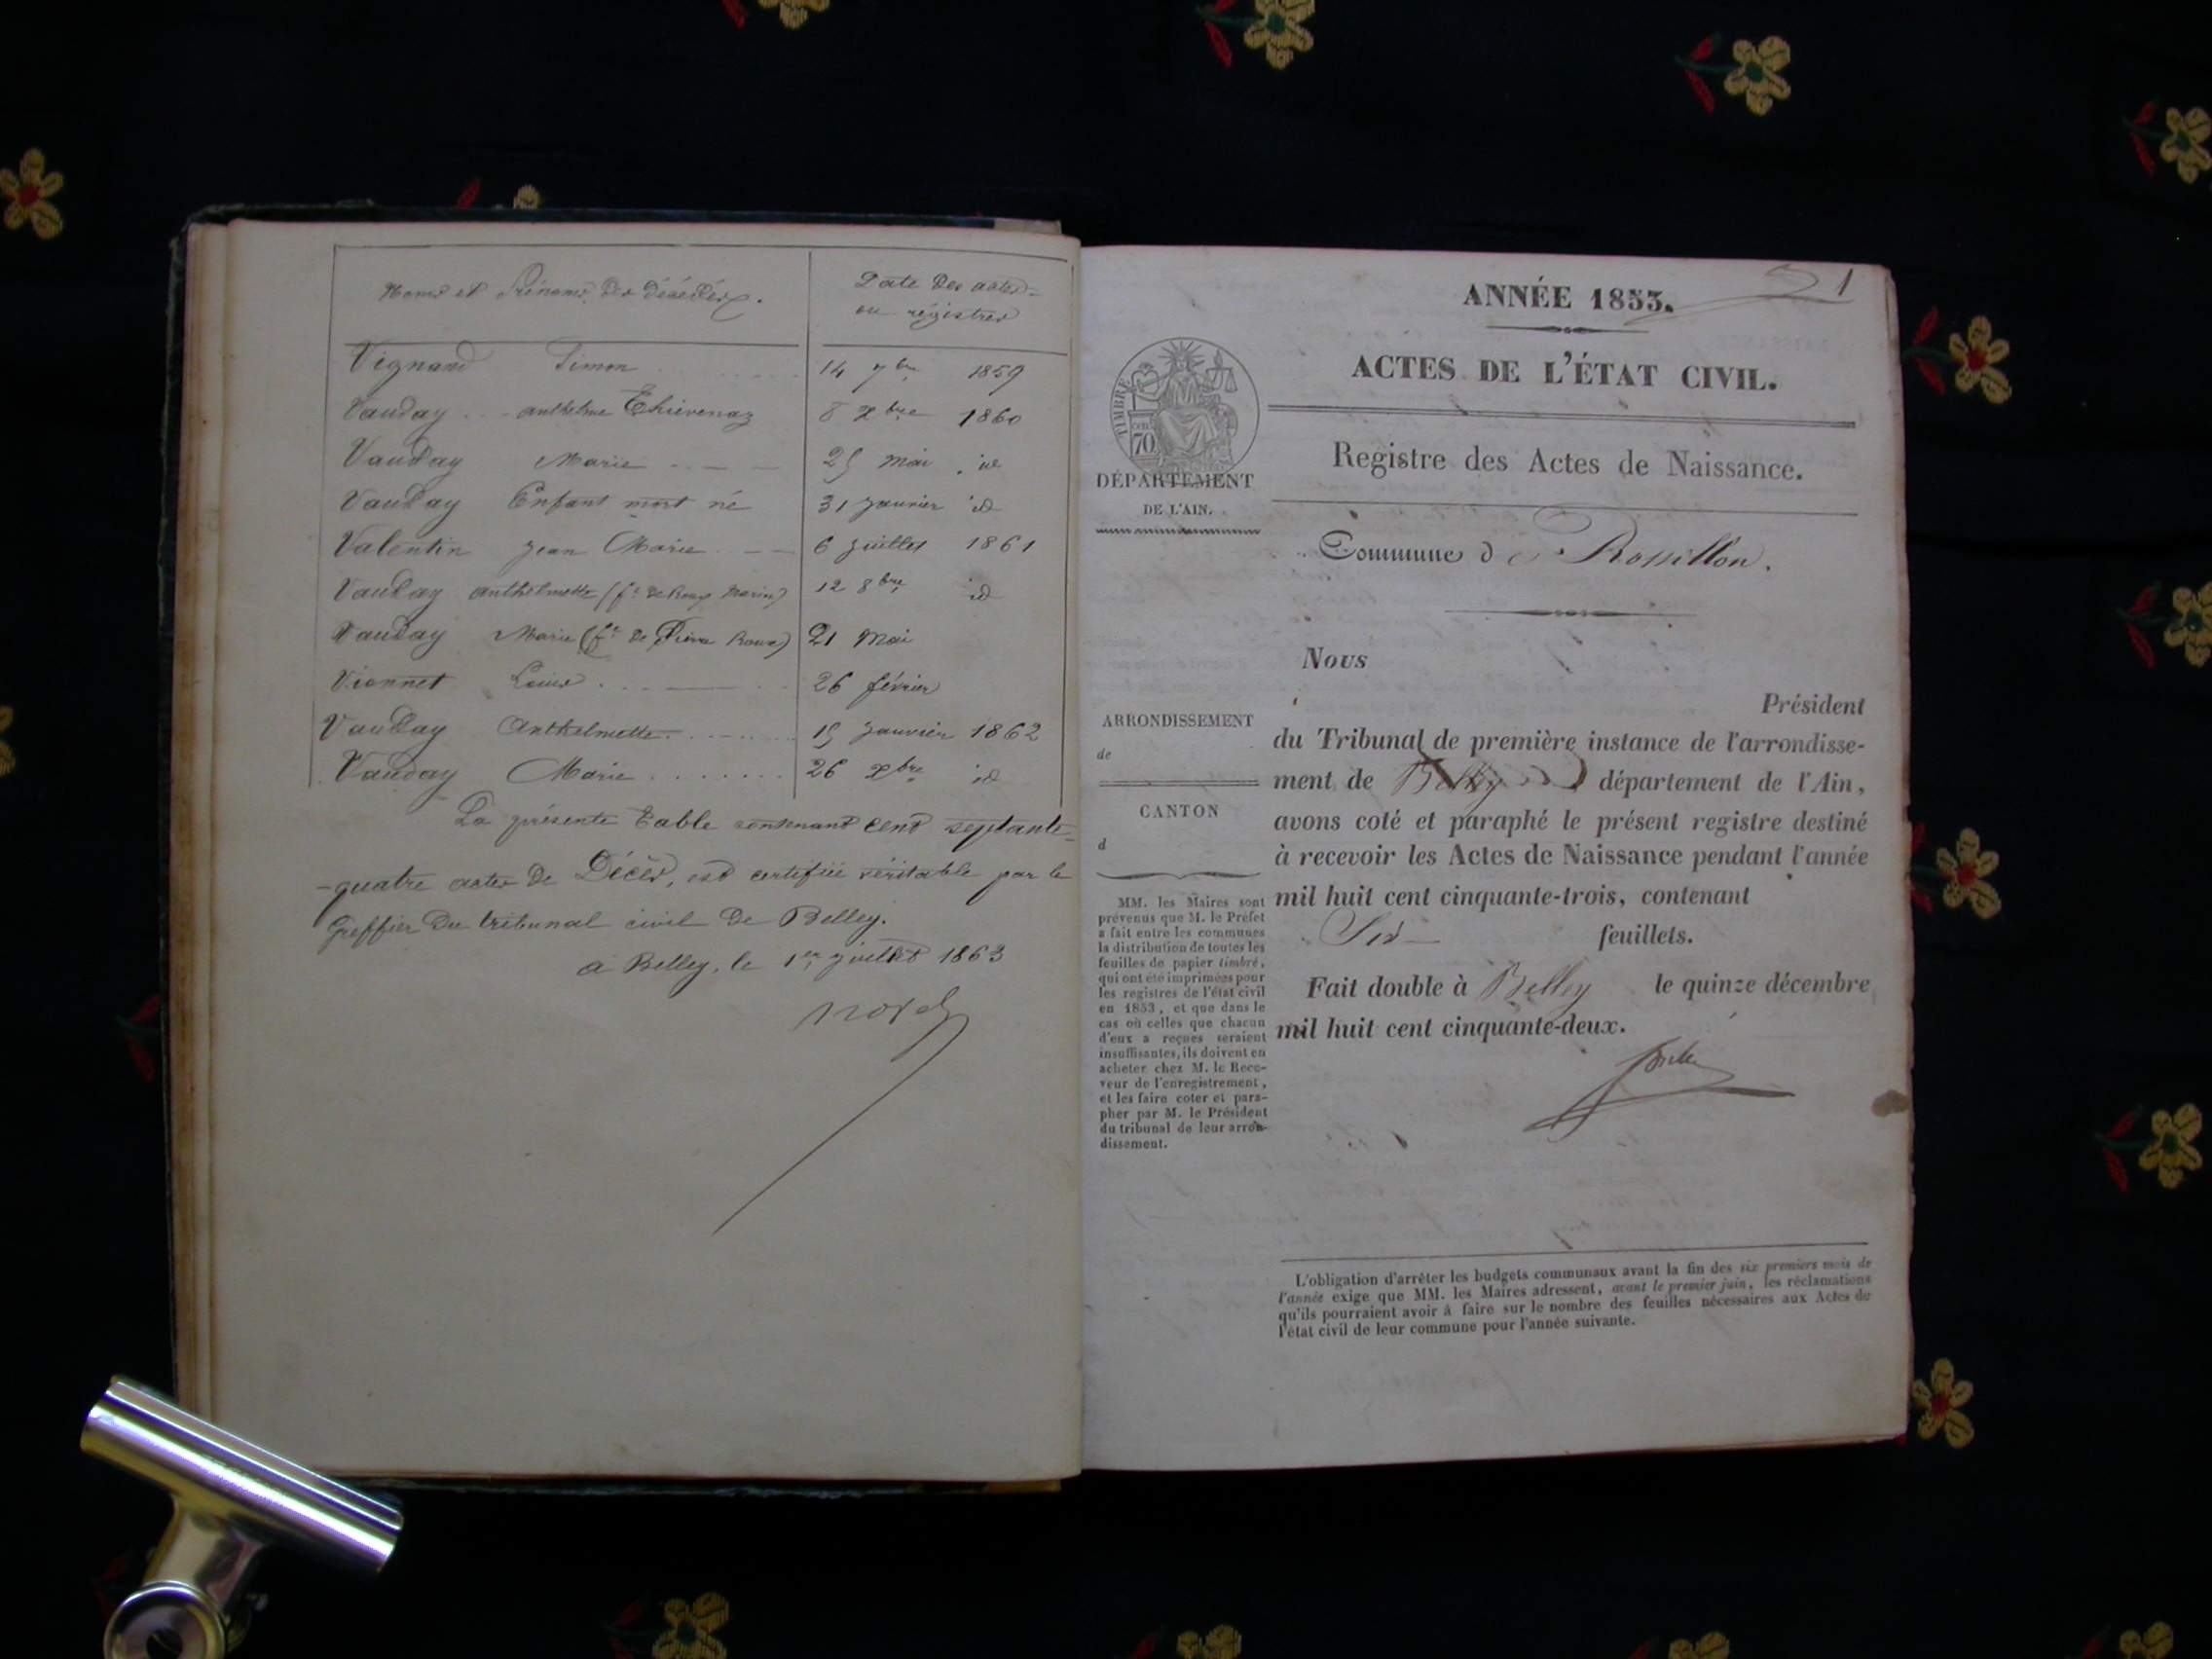 Noms et Prénoms des décédés.
Date des actes
ou régistres
Vignand Simon 14 7bre 1859
Vauday anthelme Thievenaz 8 Xbre 1860
Vauday Marie 25 mai id
Vauday Enfant mort né 31 janvier id
Valentin Jean Marie 6 juillet 1861
Vauday anthelmette (fe de Roux Marin) 12 8bre id
Vauday Marie (fe de Pierre Roux) 21 mai
Vionnet Louis 26 février
Vauday Anthelmette 15 janvier 1862
Vauday Marie 26 Xbre id
La présente table contenant cent septante-
-quatre actes de Décès, est certifiée véritable par le
Greffier du tribunal civil de Belley.
à Belley, le 1er juillet 1863
1
ANNÉE 1853.
ACTES DE L'ÉTAT CIVIL.
Registre des Actes de Naissance.
TIMBRE
70
DÉPARTEMENT
DE L'AIN.
Commune de Rossillon.
Nous
Président
du Tribunal de première instance de l'arrondisse-
ment de Belley département de l'Ain,
avons coté et paraphé le présent registre destiné
à recevoir les Actes de Naissance pendant l'année
mil huit cent cinquante-trois, contenant
Six feuillets.
Fait double à Belley le quinze décembre
mil huit cent cinquante-deux.
ARRONDISSEMENT
de
CANTON
d
MM. les Maires sont
prévenus que M. le Préfet
a fait entre les communes
la distribution de toutes les
feuilles de papier timbré,
qui ont été imprimées pour
les registres de l'état civil
en 1853, et que dans le
cas où celles que chacun
d'eux a reçues seraient
insuffisantes, ils doivent en
acheter chez M. le Rece-
veur de l'enregistrement,
et les faire coter et para-
pher par M. le Président
du tribunal de leur arron-
dissement.
L'obligation d'arrêter les budgets communaux avant la fin des six premiers mois de
l'année exige que MM. les Maires adressent, avant le premier juin, les réclamations
qu'ils pourraient avoir à faire sur le nombre des feuilles nécessaires aux Actes de
l'état civil de leur commune pour l'année suivante.